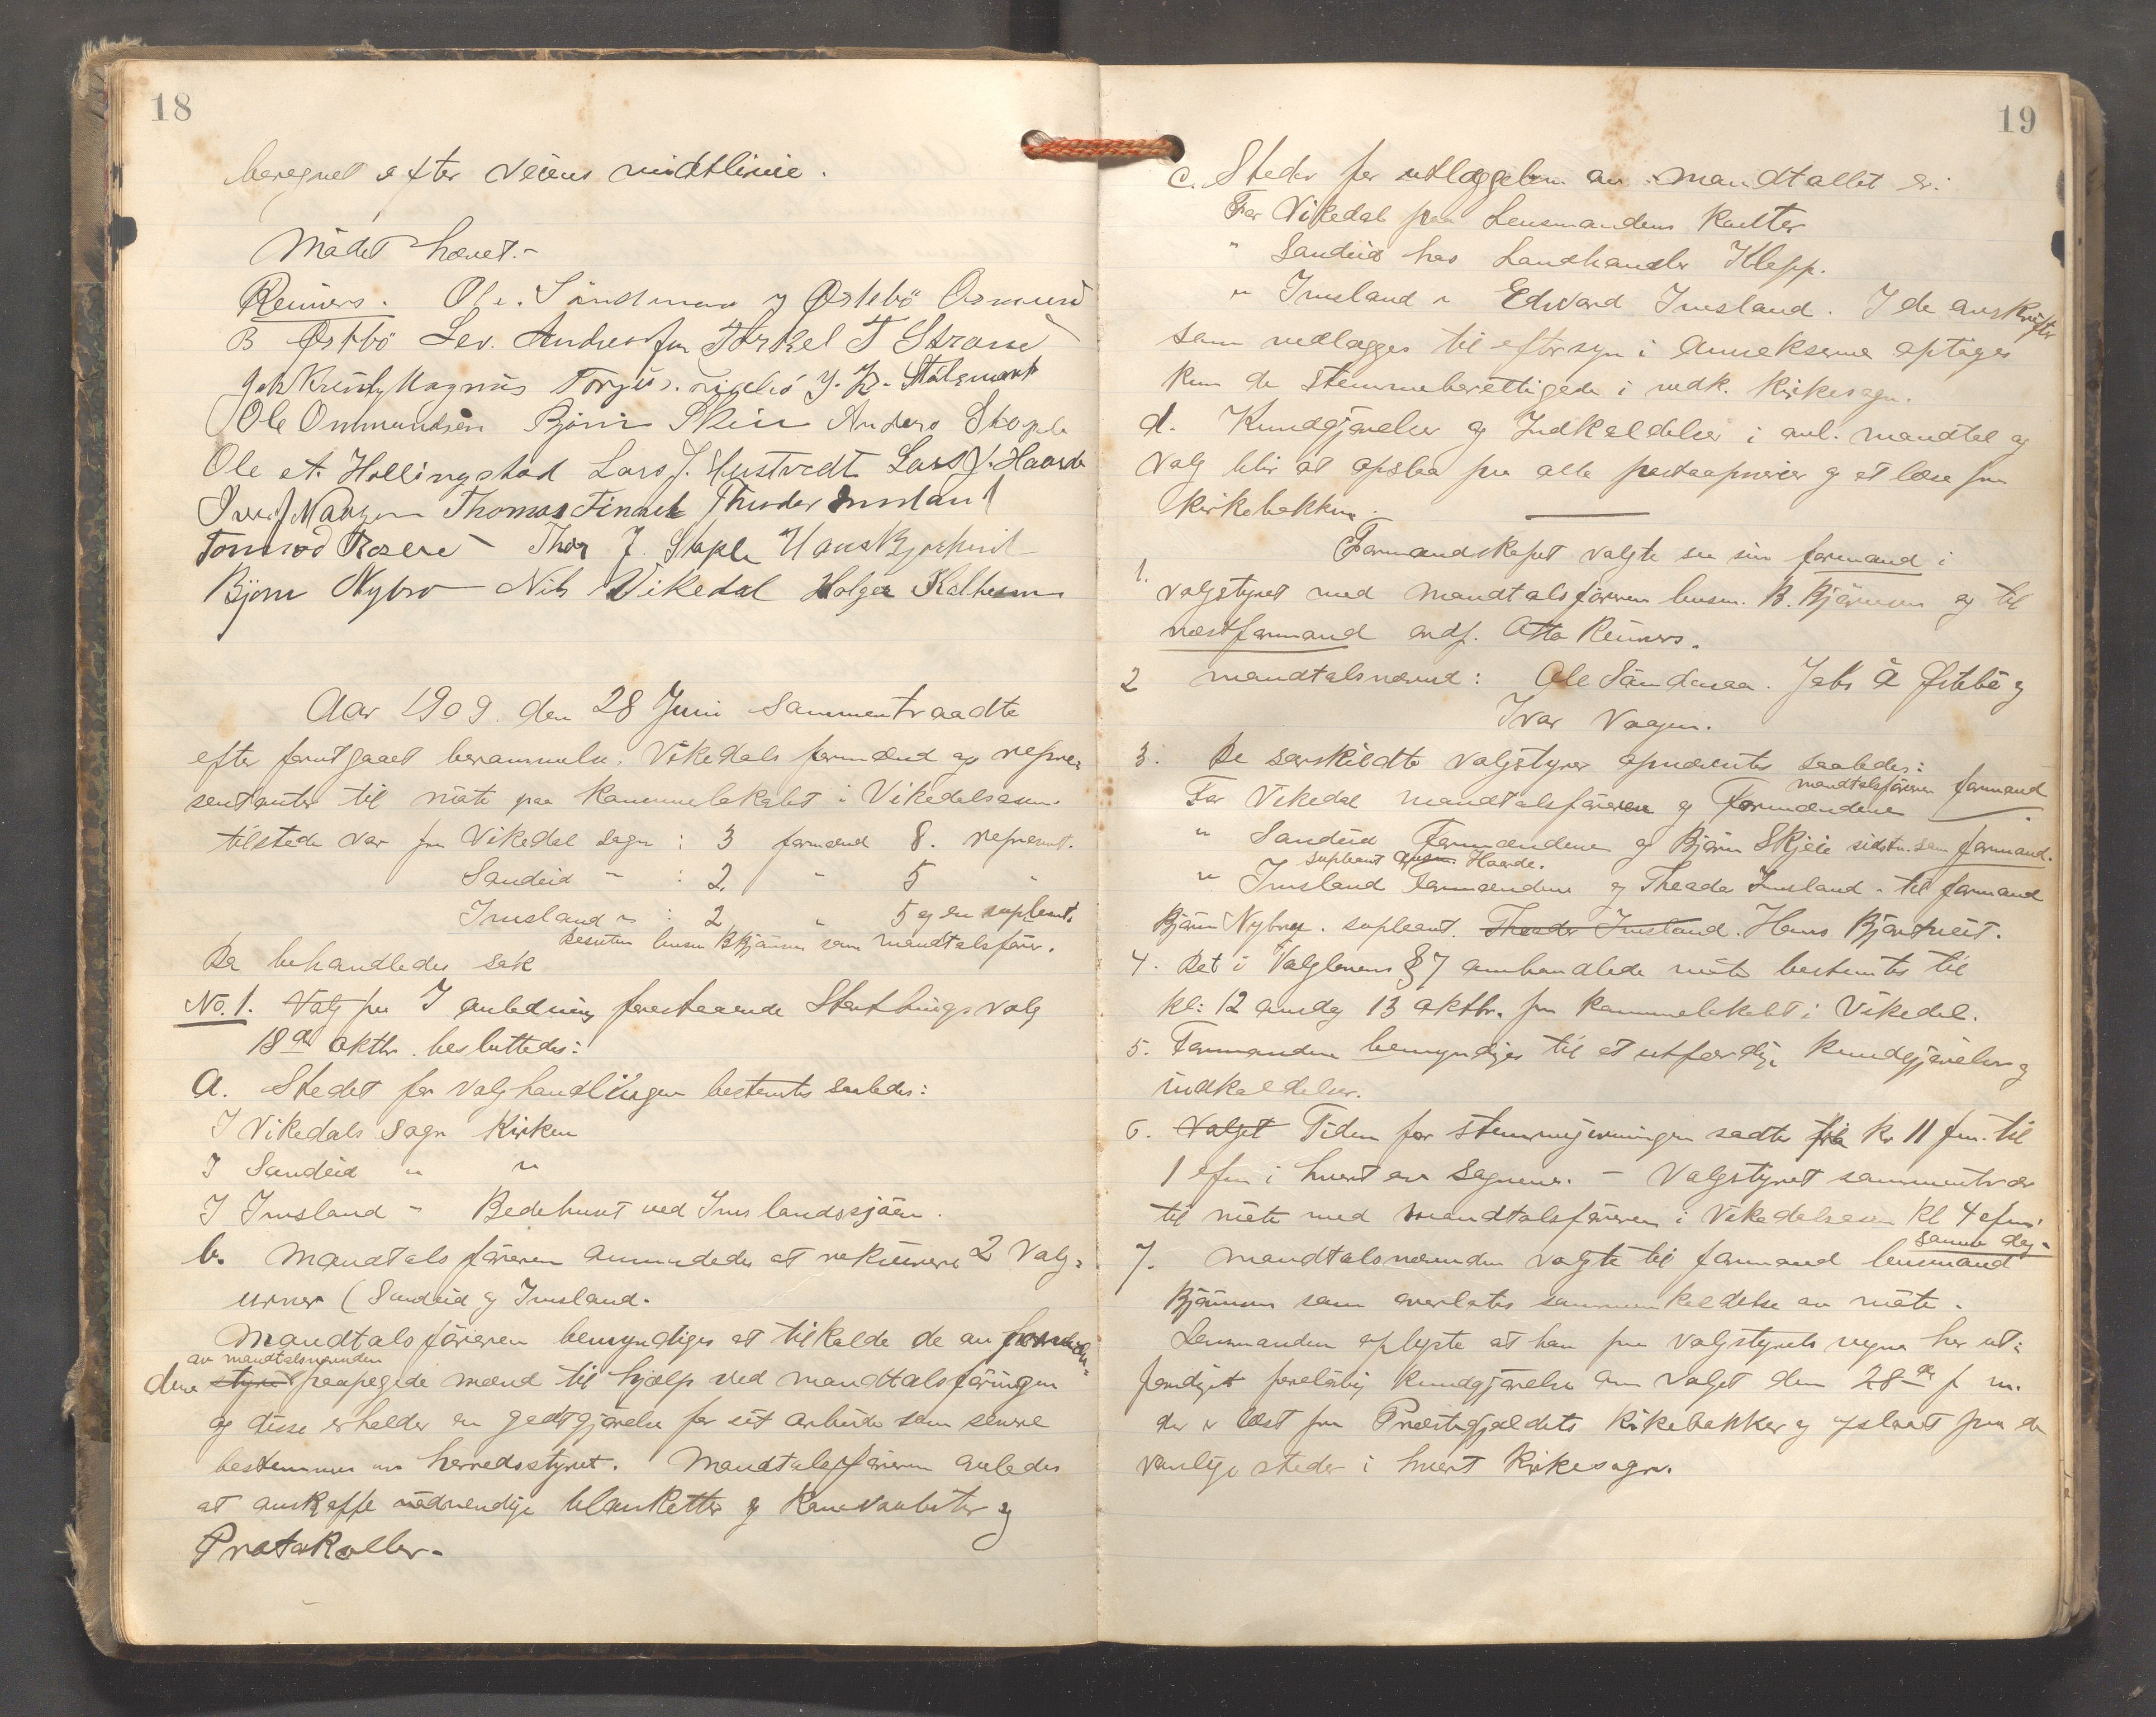 18
beregnet efter veiens midtlinie.
Mødet hævet.-
Reimers. Ole. Søndenaa J Østebö Osmund
B Østbö Sev. Andreassen Torkel T Strand
Magnus Torgus. J. K. Stålemark
Ole Ommundsen Bjørn Skeie Anders Stople
Ole A. Hollingstad Lars J. Hustvedt Lars J. Haarde
Thomas Finnvik Theodor Imsland
Tormod Thor J. Stople Hans Bjørtveit
Bjørn Nybro Nils Vikedal Holger Kalheim
Aar 1909. den 28 Juni sammentraadte
efter forutgaaet berammelse Vikedals formænd og repræ-
sentanter til møte paa kommunelokalet i Vikedalsøen.
tilstede var fra Vikedal sogn : 3 formænd 8. repræsent.
Sandeid " : 2 " 5 "
Imsland " : 2 " 5 og en supleant.
Desuten lensm B Bjørnsen som mandtalsfører.
Da behandledes sak
No. 1. Valg paa I anledning forestaaende Storthingsvalg
18de oktbr. besluttedes:
a. Stedet for valghandlingen bestemtes saaledes:
I Vikedals Sogn Kirken
I Sandeid " "
I Imsland " Bedehuset ved Imslandssjøen.
b. Mandtalsføreren anmodedes at rekvirere 2 Valg-
urner (Sandeid og Imsland.
Mandtalsføreren bemyndiges at tilkalde de av
av mandtalsnævnden
dene styre paapegede mænd til hjælp ved mandtalsføringen
og disse erholder en godtgjørelse for sit arbeide som senere
bestemmes av herredsstyret. Mandtalsføreren anledes
at anskaffe nødvendige blanketter og Konvolutter og
Protokoller.-
19
c. Steder for utlæggelsen av mandtallet er:
For Vikedal paa Lensmandens Kontor
" Sandeid hos Landhandler Klepp.
" Imsland " Edvard Imsland. I de avskrifter
som utlægges til eftersyn i Annekserne optages
kun de stemmeberettigede i vedk. kirkesogn.
d. Kundgjørelser og Indkaldelser i anl. mandtal og
valg blir at opslaa paa alle posteaapnerier og at læse fra
kirkebakken.
1. Formandskapet valgte som sin formand i
valgstyret med mandtalsføreren lensm. B. Bjørnsen og til
næstformand ordf. Otto Reimers.
2 mandtalsnævnd: Ole Søndenaa. Jabs Å Østebö og
Ivar Vaagen.
3. De særskildte valgstyrer opnævntes saaledes:
mandtalsføreren formand
For Vikedal mandtalsføreren og Formændene
" Sandeid Formændene og Bjørn Skjeie sidstn. som formand.
supleant Haarde.
" Imsland Formændene og Theodor Imsland - til formand
Bjørn Nybro. supleant. Theodor Imsland. Hans Bjørtveit.
4. Det i Valglovens § 7 omhandlede møte bestemtes til
kl: 12 onsdag 13 oktbr. paa kommunelokalet i Vikedal.
5. Formanden bemyndiges til at utfærdige kundgjørelser og
indkaldelser.
6. Valget Tiden for stemmegivningen sadtes fra kl 11 fm. til
1 efm i hvert av Sognene. - Valgstyret sammentræder
til møte med mandtalsføreren i Vikedalsøen kl 4 efm.
samme dag.
7. Mandtalsnævnden valgte til formand lensmand
Bjørnsen som overlates sammenkaldelse av møte.
Lensmanden oplyste at han paa valgstyrets vegne har ut-
færdiget foreløbig kundgjørelse om valget den 28de f. m.
der er læst fra Præstegjældets kirkebakker og opslaaet paa de
vanlige steder i hvert kirkesogn.